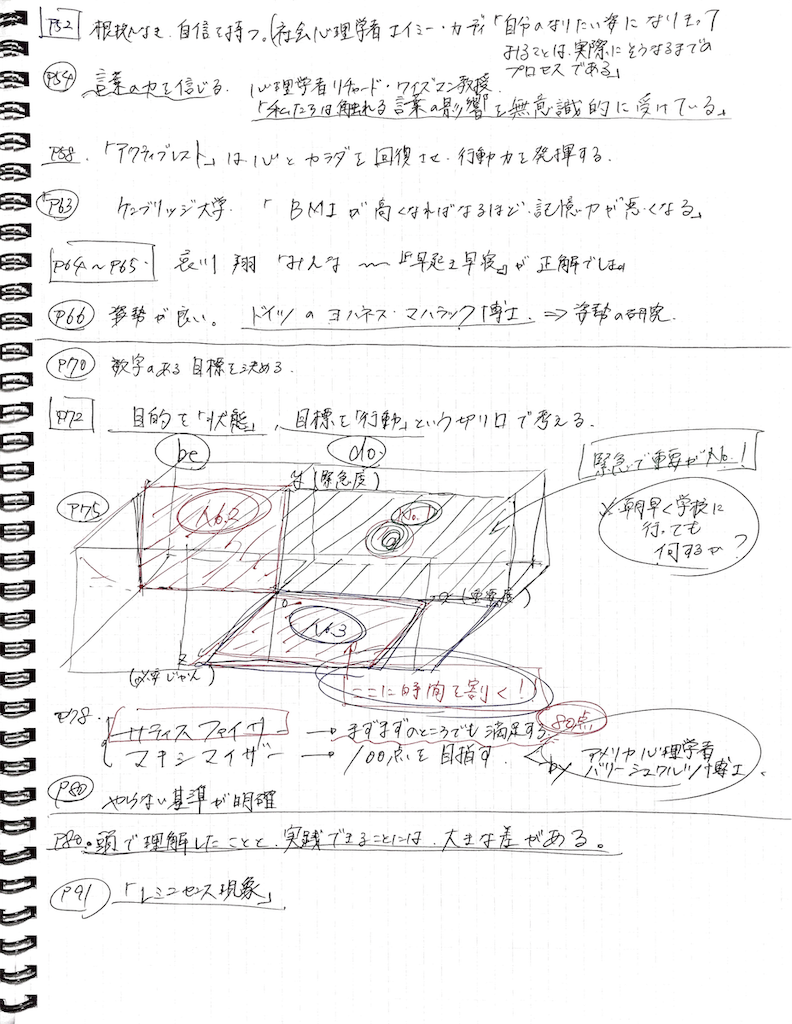 P52 根拠なき自信を持つ。(社会心理学者エイミー・カディ「自分のなりたい姿になりきって
みることは、実際にそうなるまでの
プロセスである」
P54 言葉の力を信じる. 心理学者リチャード・ワイズマン教授.
「私たちは触れる言葉の影響を無意識的に受けている」
P58. 「アクティブレスト」は心とカラダを回復させ.行動力を発揮する.
P63 ケンブリッジ大学. 「BMIが高くなればなるほど.記憶力が悪くなる」
P64〜P65. 哀川翔「みんな 〜『早起き早寝』が正解でしょ」
P66 姿勢が良い。 ドイツのヨハネス・マハラック博士. ⇒ 姿勢の研究.
P70 数字のある目標を決める.
P72 目的を「状態」, 目標を「行動」という切り口で考える.
be do.
緊急で重要がNo.1
P75 y(緊急度)
No.2 No.1
※朝早く学校に
行っても
何するか?
0 x(重要度)
No.3
z
ここに時間を割く!
P78. サティスファイザー → まずまずのところでも満足する. 80点
マキシマイザー → 100点を目指す. by アメリカ心理学者
バリー・シュワルツ博士.
P80 やらない基準が明確
P80.頭で理解したことと.実践できることには.大きな差がある。
P91 「レミニセンス現象」